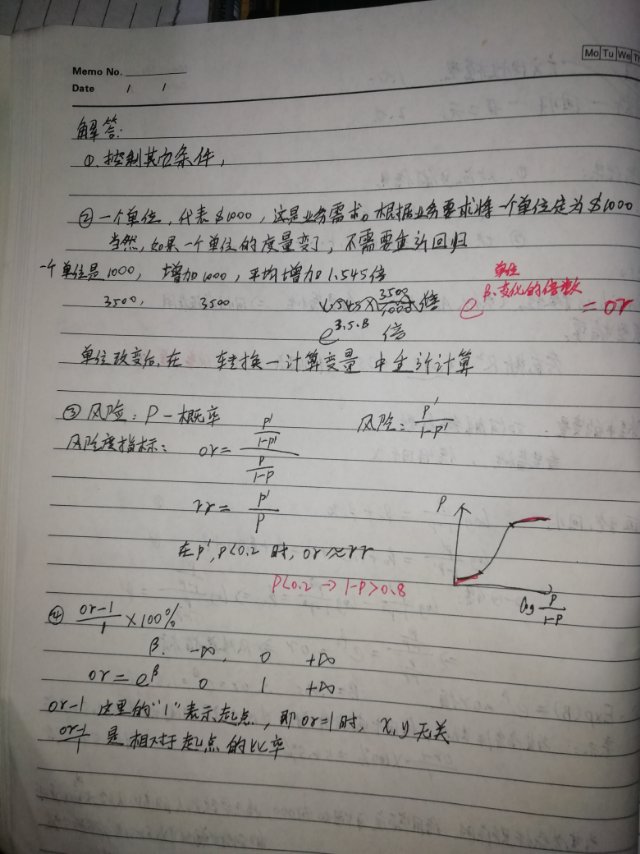 Mo Tu We Th
Memo No.
Date / /
解答:
①.控制其它条件,
②一个单位,代表$1000,这是业务需求。根据业务要求将一个单位定为$1000
当然,如果一个单位的度量变了,不需要重新回归
一个单位是1000, 增加1000, 平均增加1.545倍
3500, 3500 1.545×3500/1000倍
e^3.5·β 倍
e^β·单位变化的倍数 = or
单位改变后,在 转换—计算变量 中重新计算
③风险:P-概率 风险:p'/1-p'
风险度指标: or = (p'/1-p')/(p/1-p)
rr = p'/p
在p',p<0.2时,or≈rr
P<0.2 → 1-P>0.8
P
log p/1-p
④ or-1/1 ×100%
β. -∞, 0 +∞
or=e^β 0 1 +∞
or-1 这里的"1"表示起点,即or=1时,x,y无关
or-1/1 是相对于起点的比率